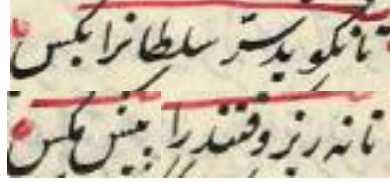 تا نگوید سر سلطانرا بکس
تا نه ریزد قند را پیش مگس